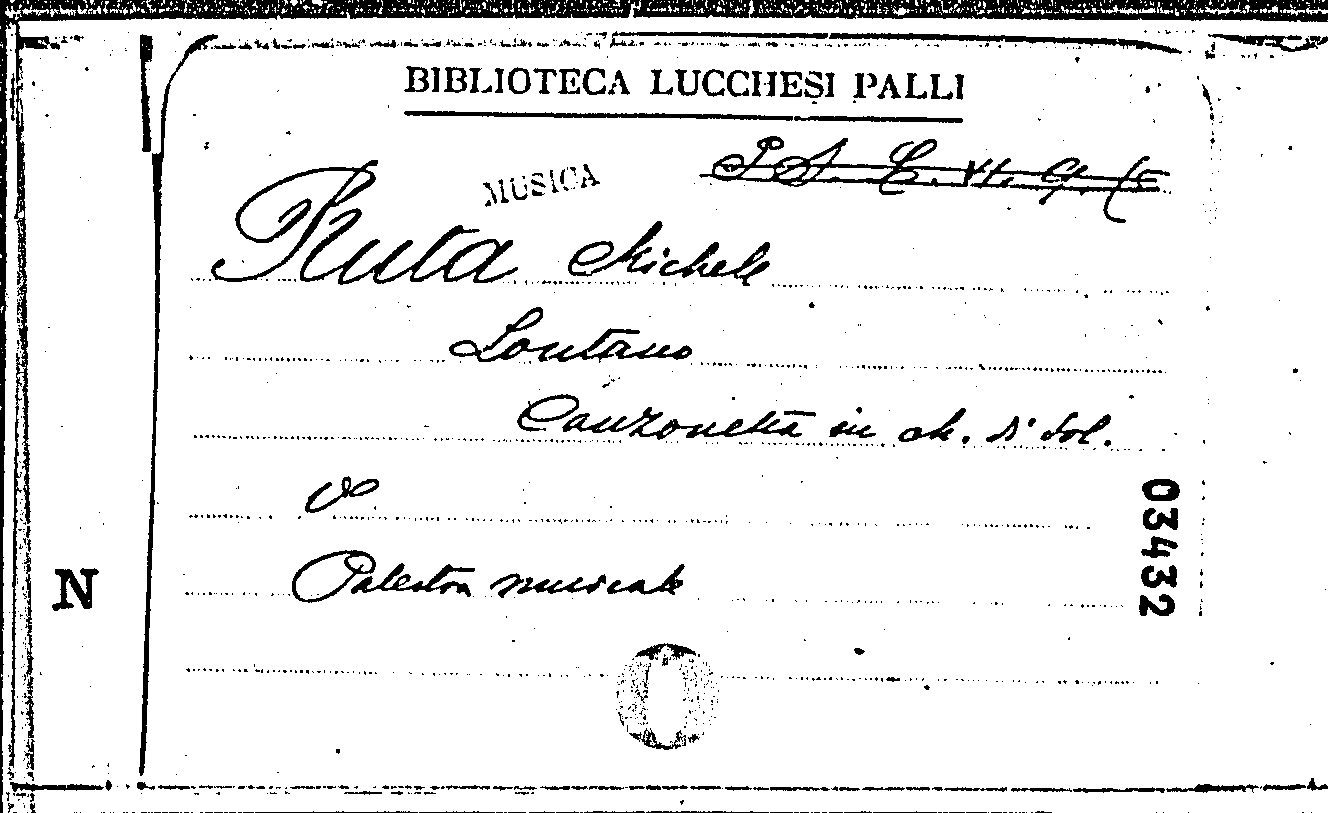 BIBLIOTECA LUCCHESI PALLI
MUSICA
Ruta Michele
Lontano
Canzonetta in ch. di Sol.
V°
Palestra musicale
03432
N